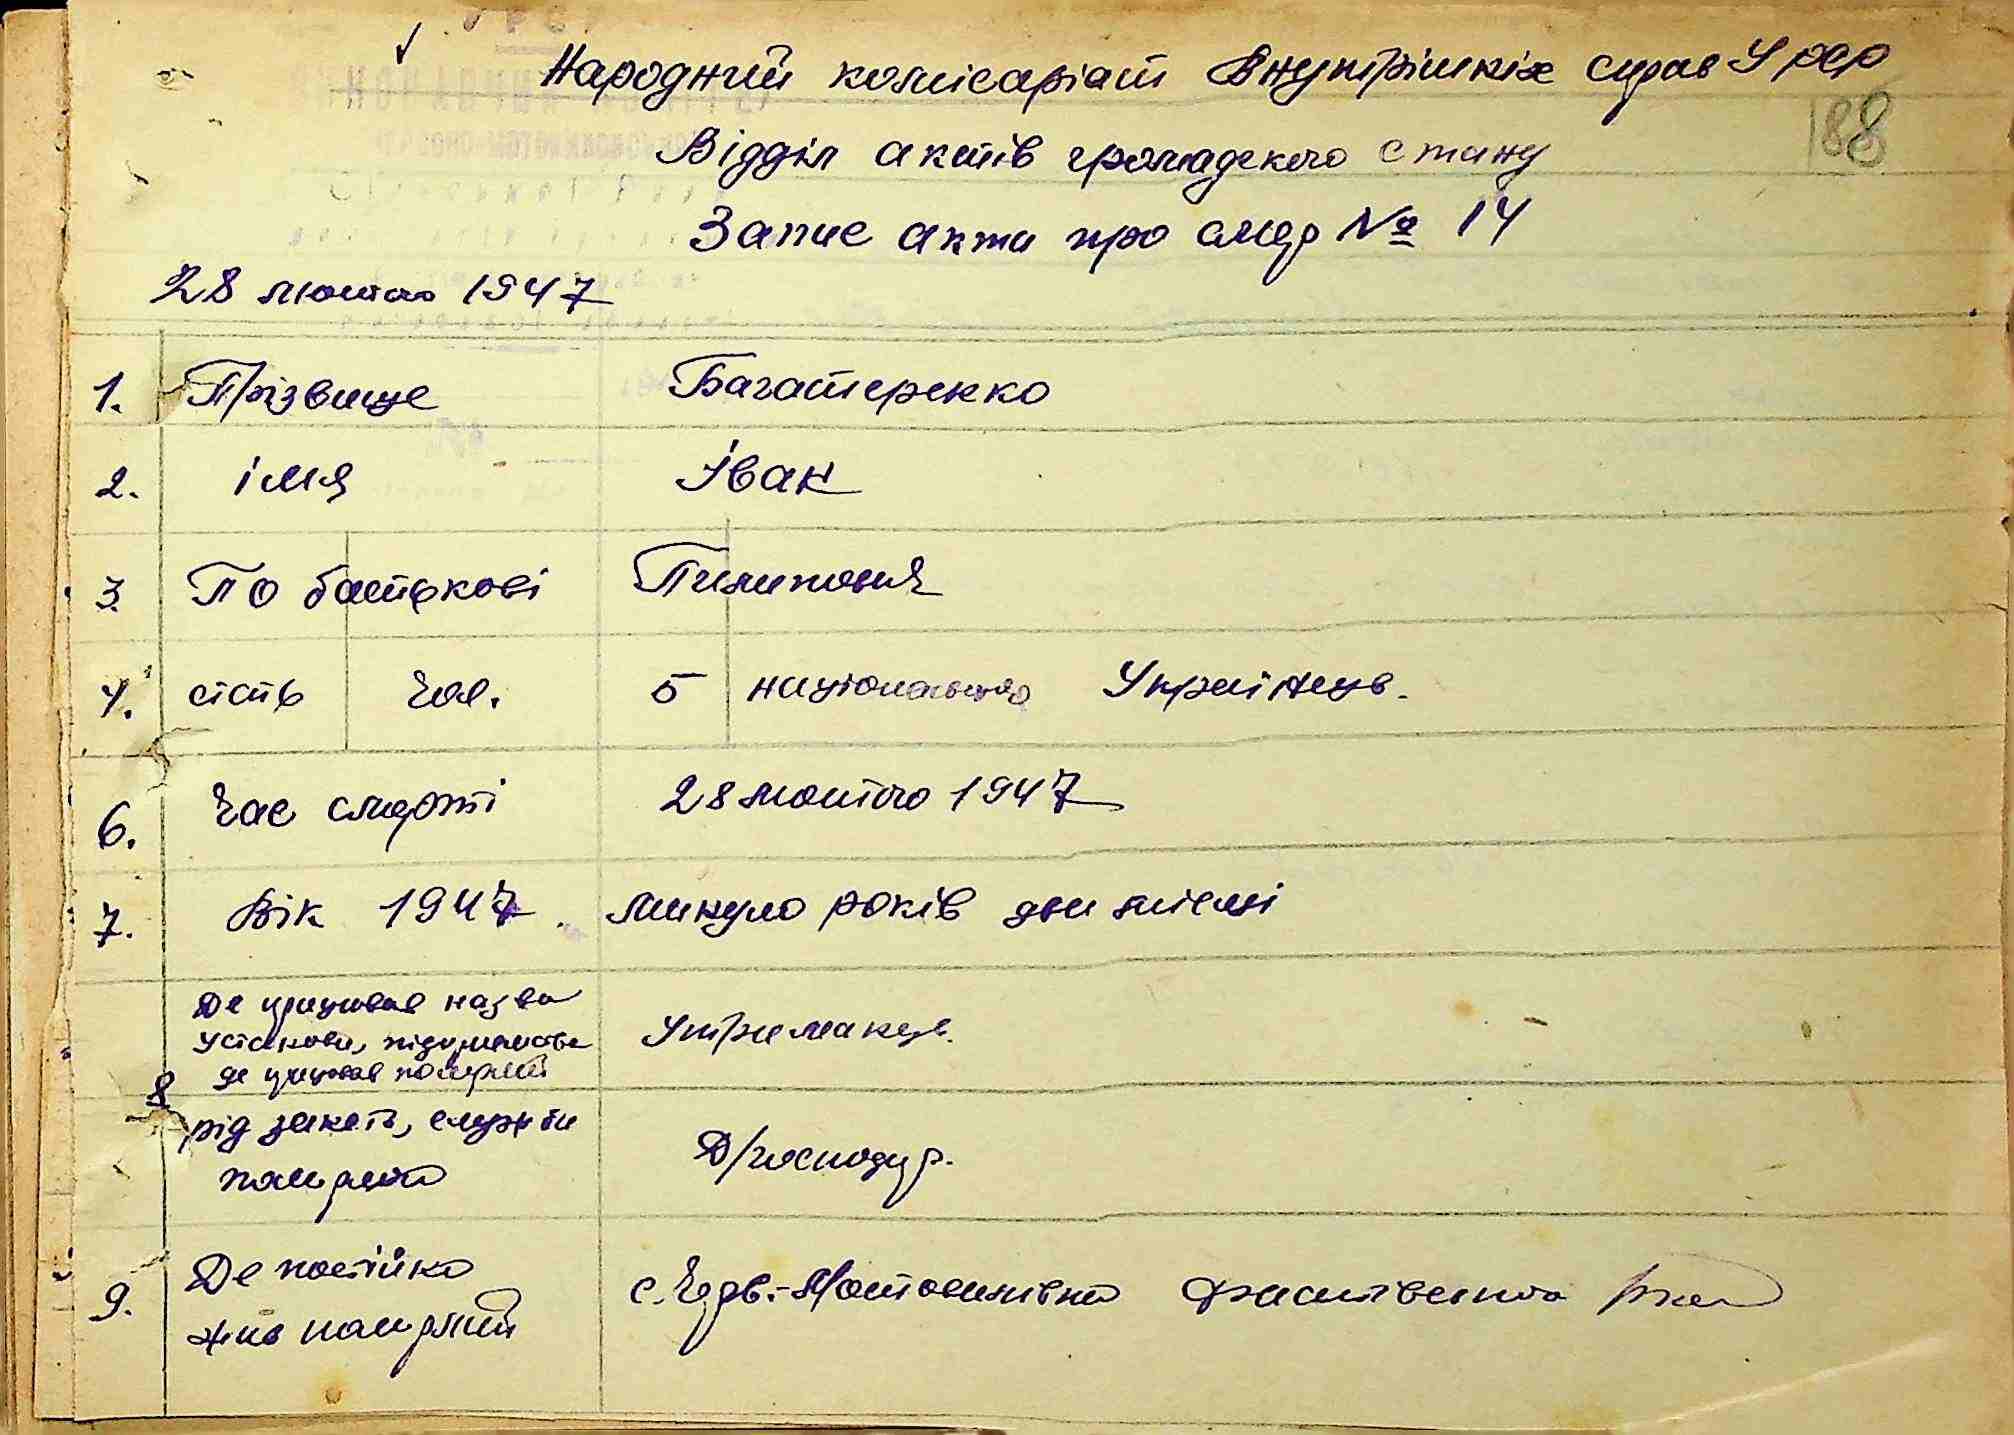 Народний комісаріат Внутрішніх справ УРСР
188
Відділ актів громадского стану
Запис акти про смер № 14
28 лютого 1947
1. Прізвище Багатеренко
2. імя Іван
3. По батькові Пилипович
4. стать чол. 5 національно Українець.
6. Час смерті 28 лютого 1947
7. Вік 1947 минуло років дви місяці
Де працював назва
установи, підприемства
де працював померший
Утриманец.
8 рід занять, служби
помершого
Д/господар.
9. Де постійно
жив померший
с. Черв.-Мотовилівка Фастівського р-на